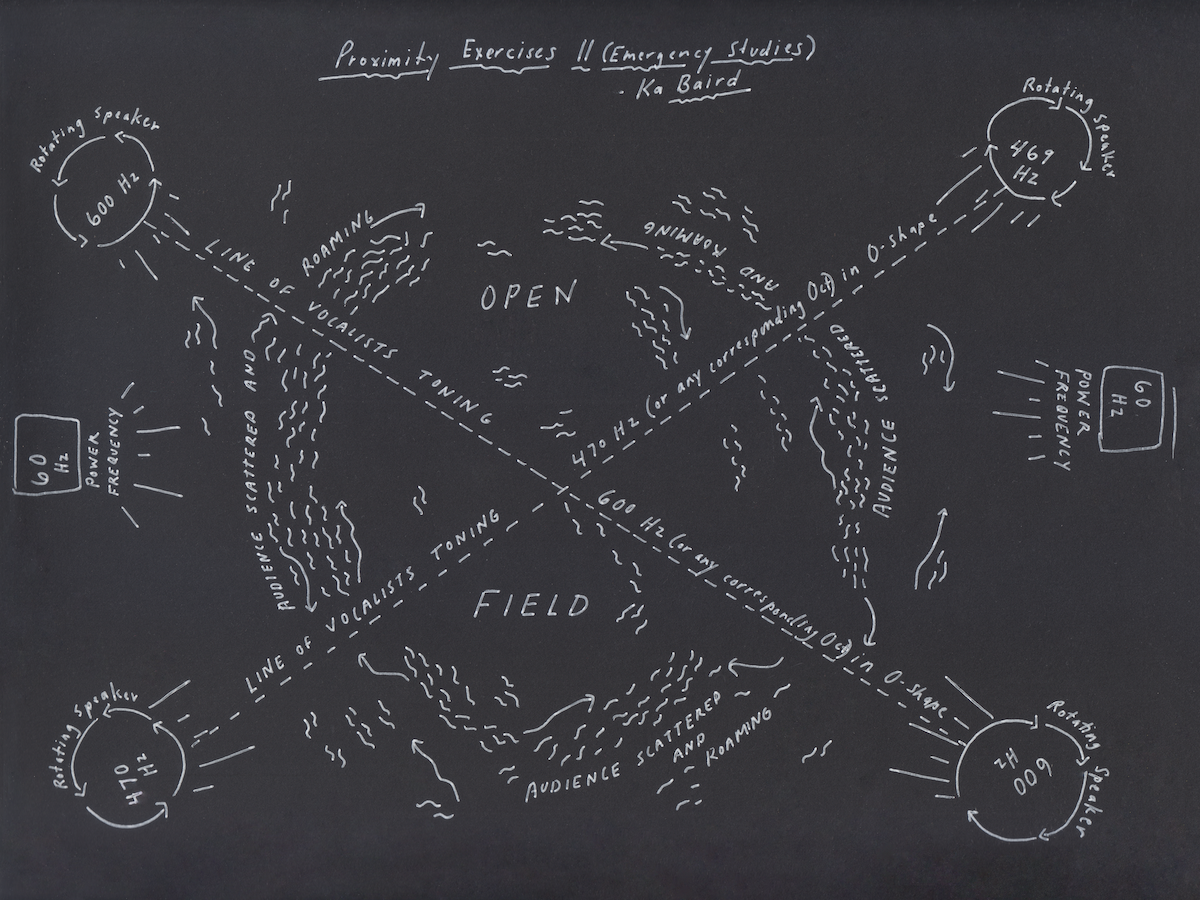 Proximity Exercises II (Emergency Studies)
- Ka Baird
Rotating Speaker
600 Hz
Rotating Speaker
469 Hz
LINE OF VOCALISTS TONING 600 Hz (or any corresponding Oct) in O-shape
LINE OF VOCALISTS TONING 470 Hz (or any corresponding Oct) in O-shape
ROAMING
AND ROAMING
OPEN
AUDIENCE SCATTERED AND
AUDIENCE SCATTERED
60 Hz
POWER FREQUENCY
60 Hz
POWER FREQUENCY
FIELD
AUDIENCE SCATTERED
AND
ROAMING
Rotating Speaker
470 Hz
Rotating Speaker
600 Hz